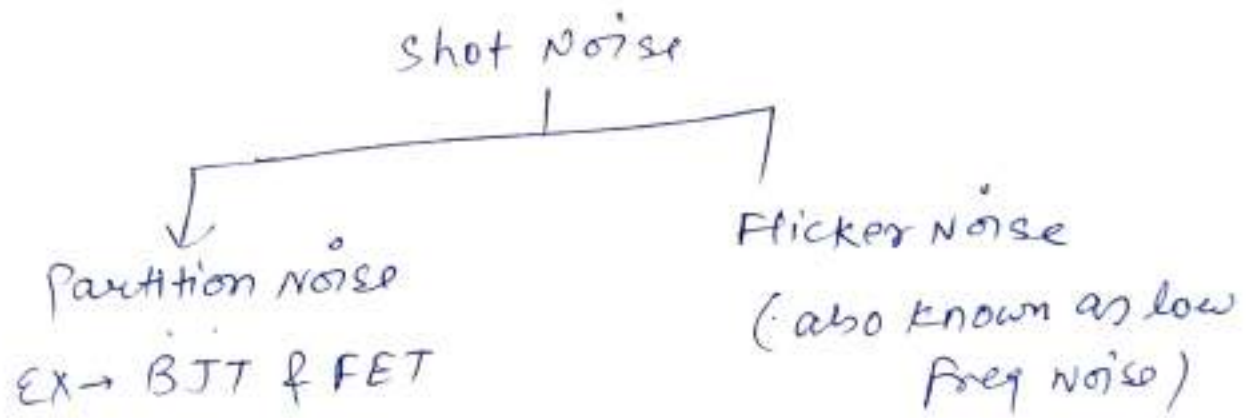 Shot Noise
Partition Noise
Ex→ BJT & FET
Flicker Noise
(also known as low
freq Noise)